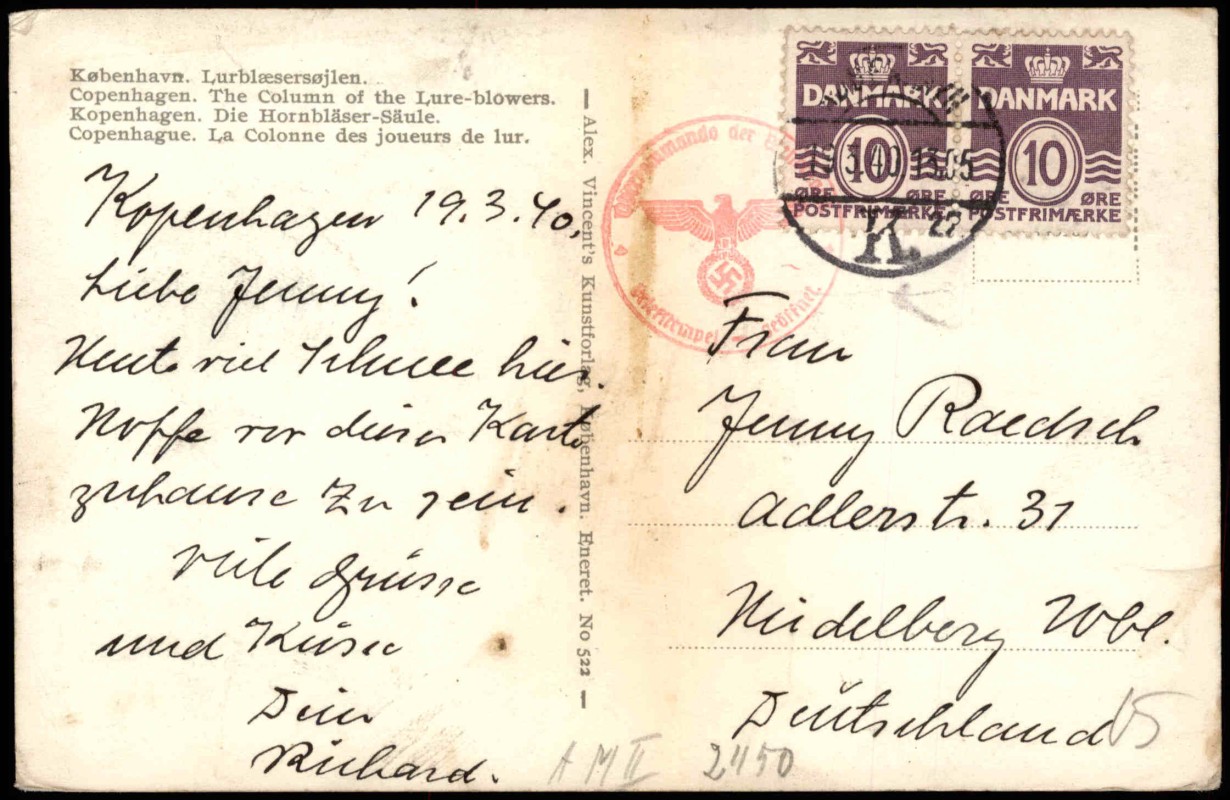 København. Lurblæsersøjlen.
Copenhagen. The Column of the Lure-blowers.
Kopenhagen. Die Hornbläser-Säule.
Copenhague. La Colonne des joueurs de lur.
Kopenhagen 19.3.40.
Liebe Jenny!
Heute viel Schnee hier.
Hoffe vor dieser Karte
zuhause zu sein.
Viele Grüsse
und Küsse
Dein
Richard.
— Alex. Vincent's Kunstforlag, København. Eneret. No 522 —
der
geöffnet.
DANMARK
10
ØRE ØRE
POSTFRIMÆRKE
DANMARK
10
ØRE ØRE
POSTFRIMÆRKE
19.3.40.13.05
K. 27
Frau
Jenny Raedsch
Adlerstr. 31
Heidelberg Wbl.
Deutschland
15
AM II 2450